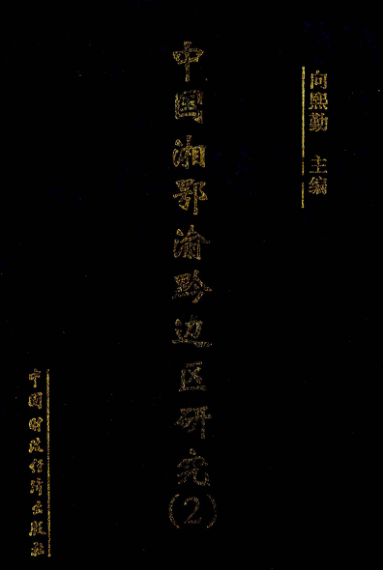 向熙勤 主编
中国湘鄂渝黔边区研究(2)
中国财政经济出版社